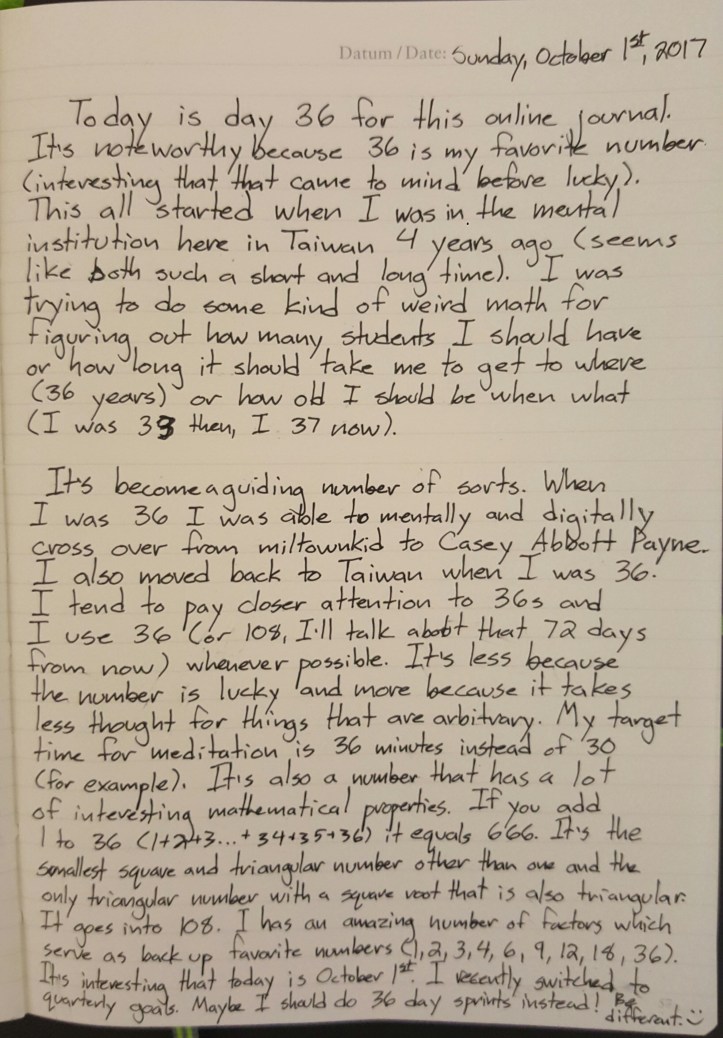 Datum / Date: Sunday, October 1st, 2017
Today is day 36 for this online journal.
It's noteworthy because 36 is my favorite number
(interesting that that came to mind before lucky).
This all started when I was in the mental
institution here in Taiwan 4 years ago (seems
like both such a short and long time). I was
trying to do some kind of weird math for
figuring out how many students I should have
or how long it should take me to get to where
(36 years) or how old I should be when what
(I was 33 then, I 37 now).
It's become a guiding number of sorts. When
I was 36 I was able to mentally and digitally
cross over from miltownkid to Casey Abbott Payne.
I also moved back to Taiwan when I was 36.
I tend to pay closer attention to 36s and
I use 36 (or 108, I'll talk about that 72 days
from now) whenever possible. It's less because
the number is lucky and more because it takes
less thought for things that are arbitrary. My target
time for meditation is 36 minutes instead of 30
(for example). It's also a number that has a lot
of interesting mathematical properties. If you add
1 to 36 (1+2+3...+34+35+36) it equals 666. It's the
smallest square and triangular number other than one and the
only triangular number with a square root that is also triangular.
It goes into 108. I has an amazing number of factors which
serve as back up favorite numbers (1, 2, 3, 4, 6, 9, 12, 18, 36).
It's interesting that today is October 1st. I recently switched to
quarterly goals. Maybe I should do 36 day sprints instead! Be
different. :)